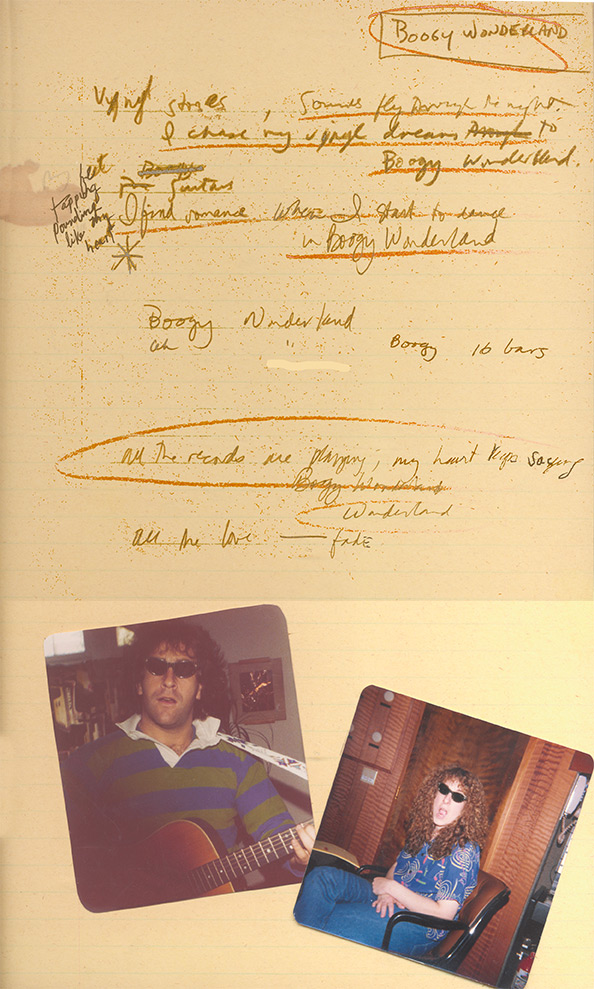 BOOGY WONDERLAND
Vynyl stores, Sounds fly through the night.
I chase my vynyl dreams to
Boogy Wonderland.
beat guitars
tapping
pounding
like my
heart
I find romance when I start to dance
in Boogy Wonderland
Boogy Wonderland
Boogy 16 bars
all the records are playing, my heart keeps saying
Boogy Wonderland
Wonderland
all the love — fade